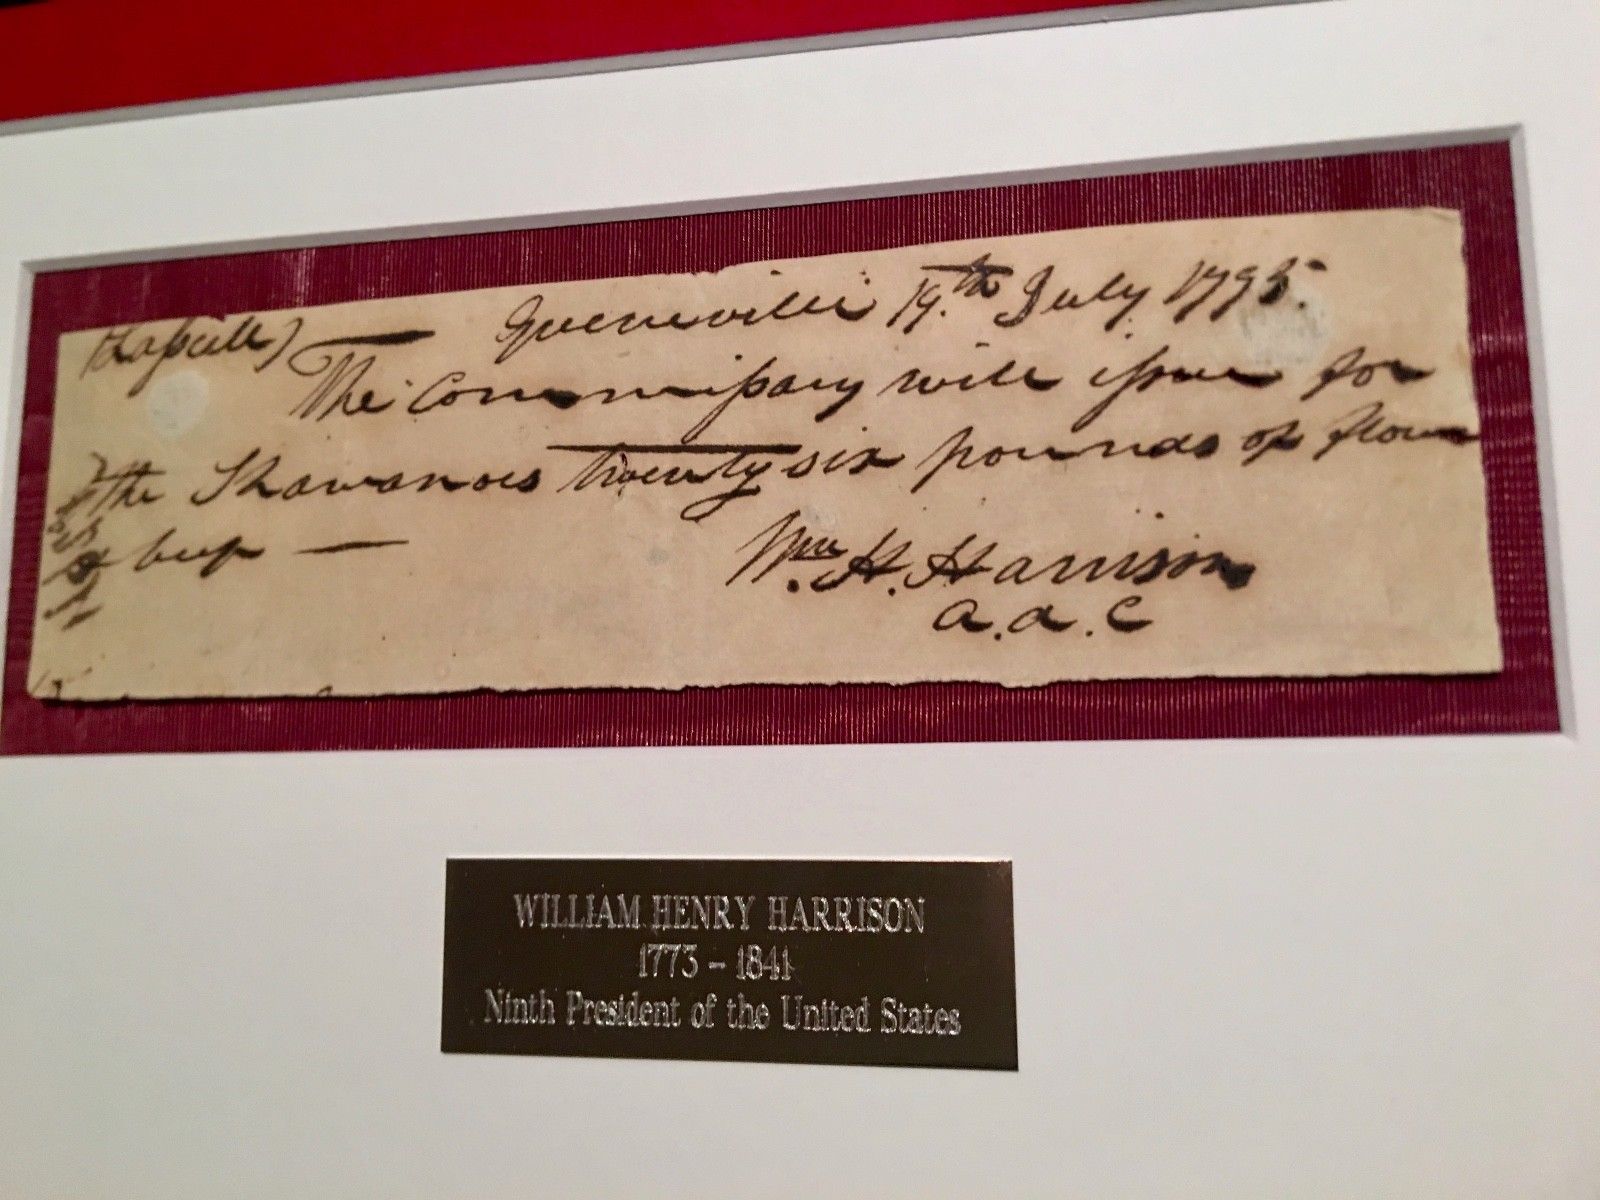 (Laſselle) — Greeneville 19.th July 1795.
The Commiſsary will iſsue for
the Shawanoes twenty six pounds of flour
& beef —
Wm. H. Harrison
a.d.C
WILLIAM HENRY HARRISON
1773 – 1841
Ninth President of the United States